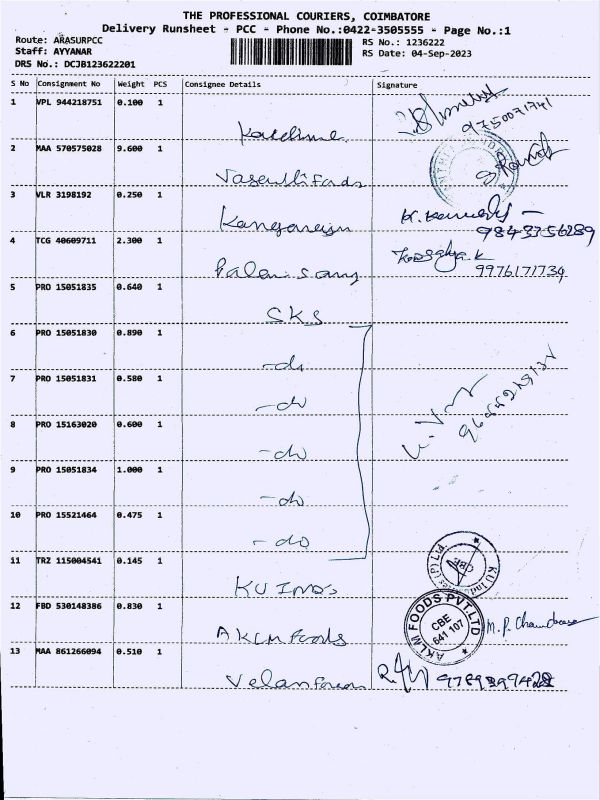 THE PROFESSIONAL COURIERS, COIMBATORE
Delivery Runsheet - PCC - Phone No.:0422-3505555 - Page No.:1
Route: ARASURPCC
Staff: AYYANAR
DRS No.: DCJB123622201
RS No.: 1236222
RS Date: 04-Sep-2023
S No Consignment No Weight PCS Consignee Details Signature
1 VPL 944218751 0.100 1
9750071741
2 MAA 570575028 9.600 1 Foods
3 VLR 3198192 0.250 1
9843756289
4 TCG 40609711 2.300 1 Kousalya.k
9976171734
5 PRO 15051835 0.640 1 SKS
6 PRO 15051830 0.890 1 -do
7 PRO 15051831 0.580 1 -do
8 PRO 15163020 0.600 1 -do
9 PRO 15051834 1.000 1 -do
10 PRO 15521464 0.475 1 -do
11 TRZ 115004541 0.145 1 KU INDS
KU Ind (P) Ltd.
CBE
12 FBD 530148386 0.830 1 AKLM Foods
AKLM FOODS PVT.LTD
CBE
641 107
13 MAA 861266094 0.510 1 Velan